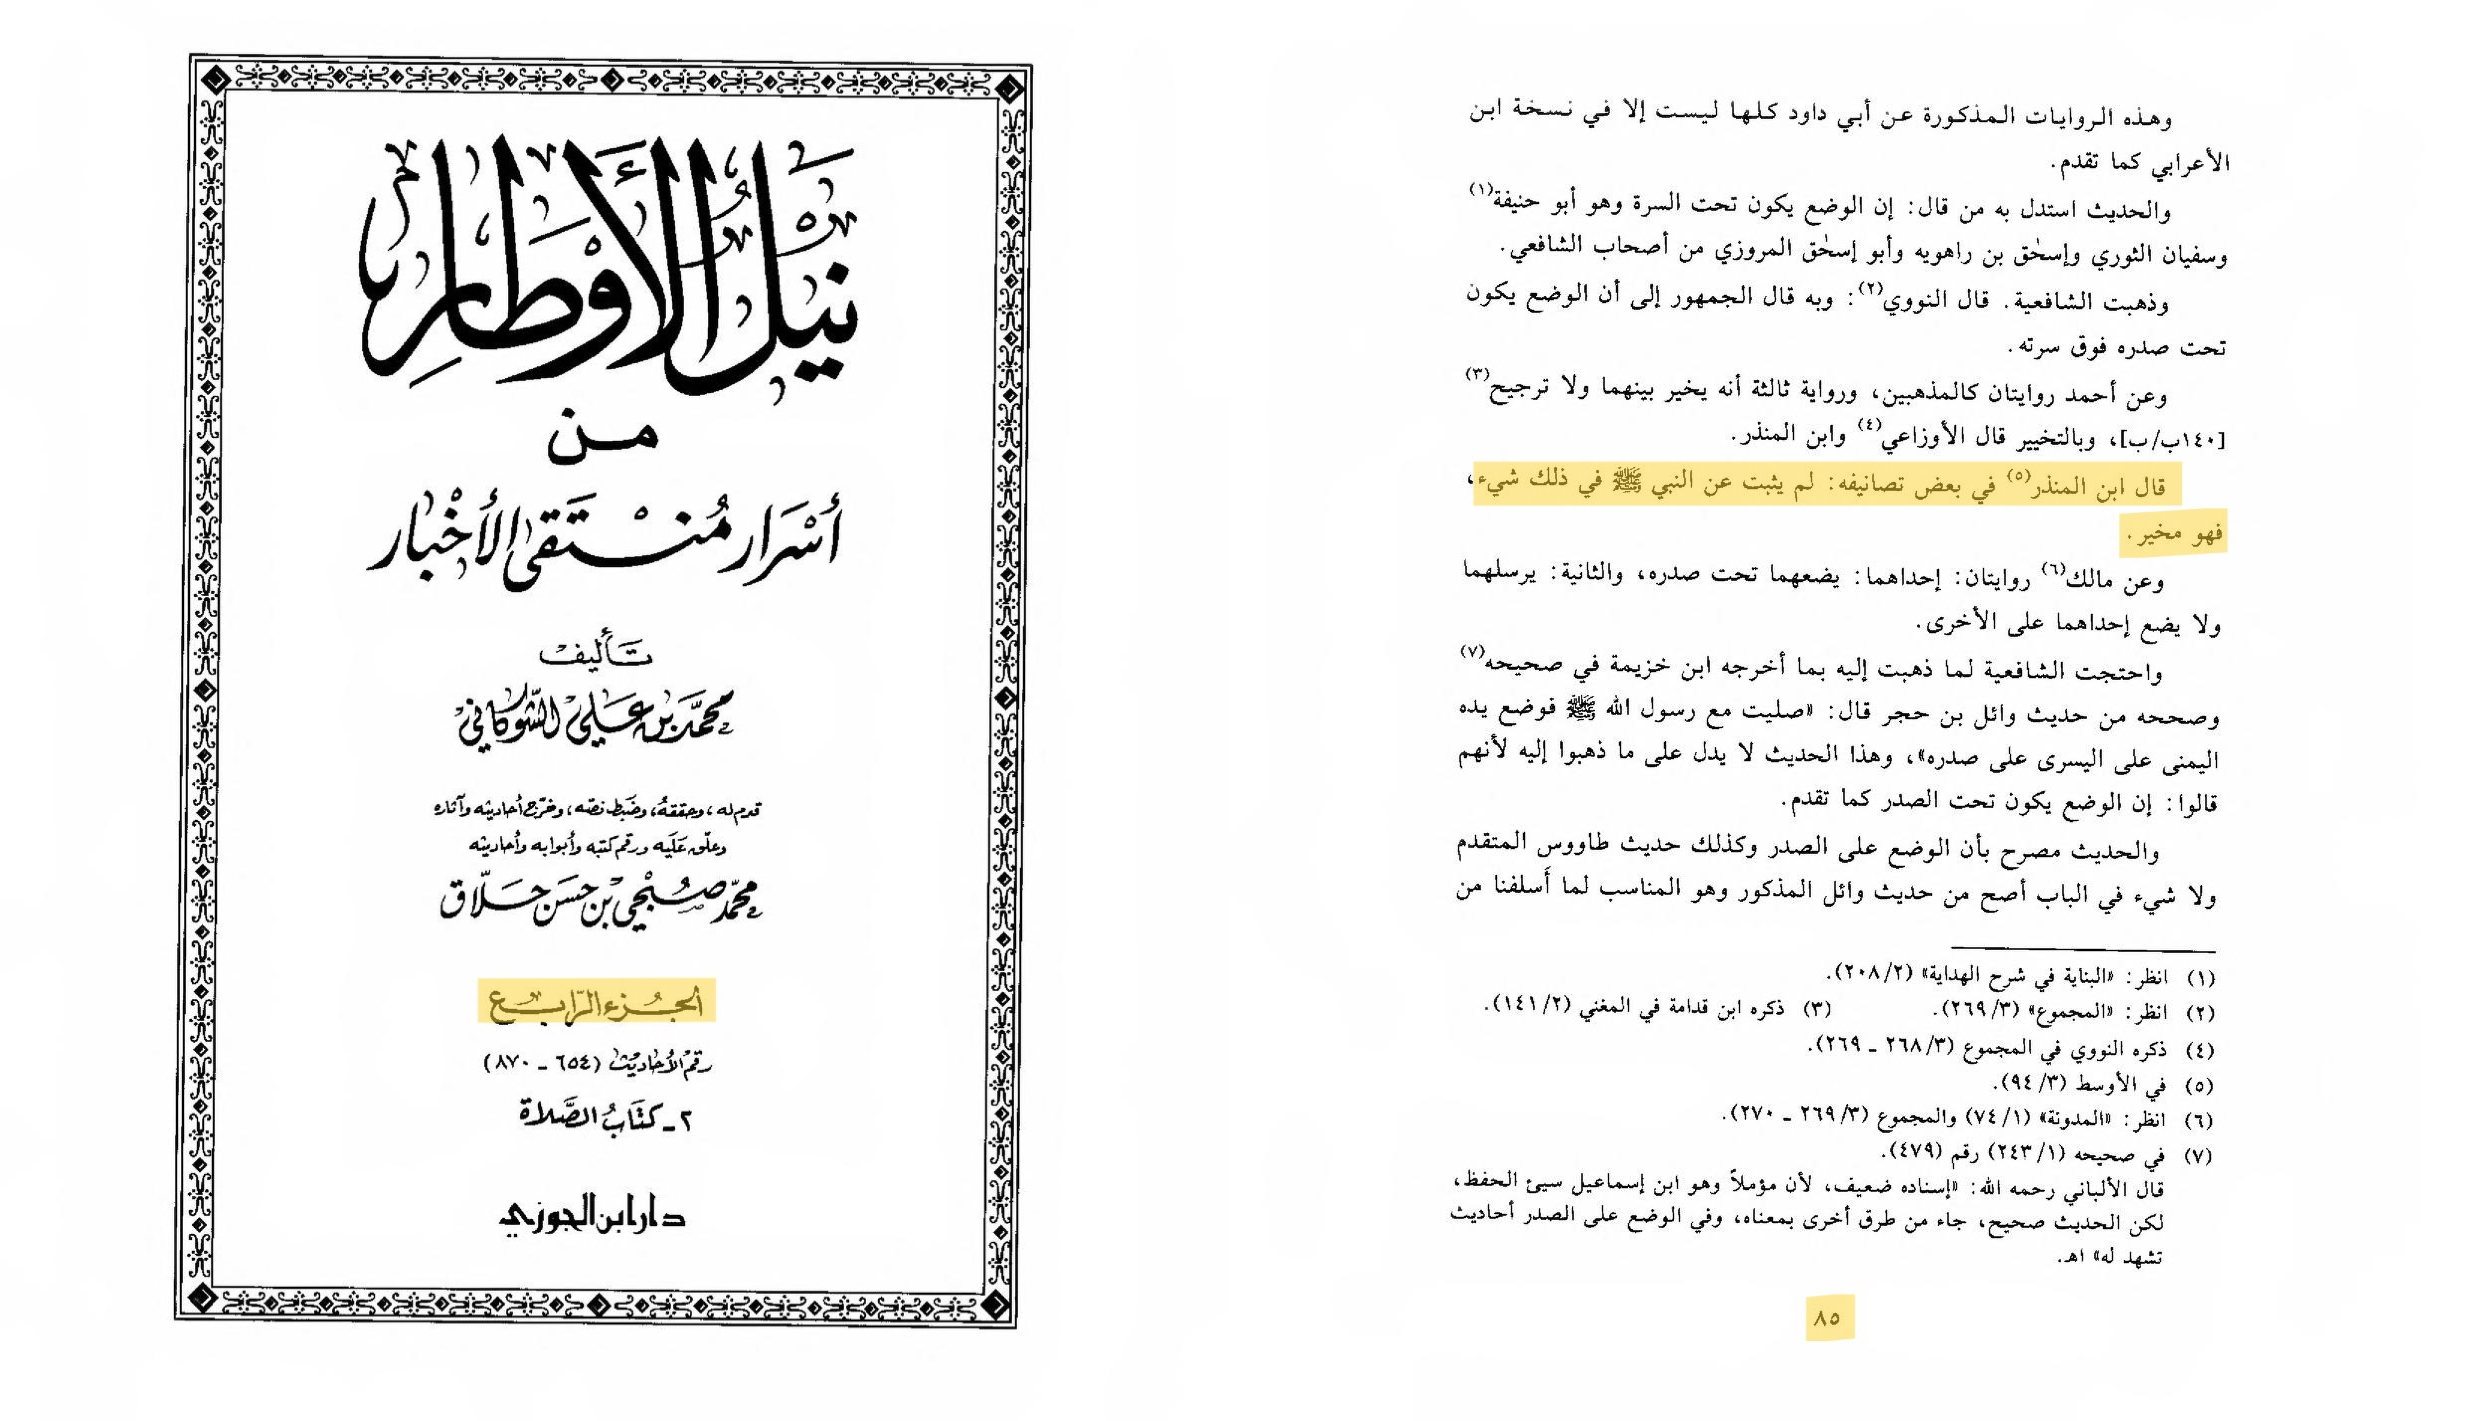 نَيْلُ الأَوْطَارِ
مِنْ
أَسْرَارِ مُنْتَقَى الأَخْبَار
تَأليف
محمَّد بن عَلي الشّوكاني
قدم له، وحققه، وضبط نصه، وخرّج أحاديثه وآثاره
وعلّق عَلَيه ورقم كتبه وأبوابه وأحاديثه
محمّد صُبْحي بن حَسَن حَلّاق
الجُزء الرّابع
رقم الأحاديث (٦٥٤ - ٨٧٠)
٢- كتَابُ الصَّلاة
دار ابن الجوزي
وهذه الروايات المذكورة عن أبي داود كلها ليست إلا في نسخة ابن
الأعرابي كما تقدم.
والحديث استدل به من قال: إن الوضع يكون تحت السرة وهو أبو حنيفة(١)
وسفيان الثوري وإسحٰق بن راهويه وأبو إسحٰق المروزي من أصحاب الشافعي.
وذهبت الشافعية. قال النووي(٢): وبه قال الجمهور إلى أن الوضع يكون
تحت صدره فوق سرته.
وعن أحمد روايتان كالمذهبين، ورواية ثالثة أنه يخير بينهما ولا ترجيح(٣)
[١٤٠ب/ب]، وبالتخيير قال الأوزاعي(٤) وابن المنذر.
قال ابن المنذر(٥) في بعض تصانيفه: لم يثبت عن النبي ﷺ في ذلك شيء،
فهو مخير.
وعن مالك(٦) روايتان: إحداهما: يضعهما تحت صدره، والثانية: يرسلهما
ولا يضع إحداهما على الأخرى.
واحتجت الشافعية لما ذهبت إليه بما أخرجه ابن خزيمة في صحيحه(٧)
وصححه من حديث وائل بن حجر قال: «صليت مع رسول الله ﷺ فوضع يده
اليمنى على اليسرى على صدره»، وهذا الحديث لا يدل على ما ذهبوا إليه لأنهم
قالوا: إن الوضع يكون تحت الصدر كما تقدم.
والحديث مصرح بأن الوضع على الصدر وكذلك حديث طاووس المتقدم
ولا شيء في الباب أصح من حديث وائل المذكور وهو المناسب لما أَسلفنا من
(١) انظر: «البناية في شرح الهداية» (٢/ ٢٠٨).
(٢) انظر: «المجموع» (٣/ ٢٦٩). (٣) ذكره ابن قدامة في المغني (٢/ ١٤١).
(٤) ذكره النووي في المجموع (٣/ ٢٦٨ - ٢٦٩).
(٥) في الأوسط (٣/ ٩٤).
(٦) انظر: «المدونة» (١/ ٧٤) والمجموع (٣/ ٢٦٩ - ٢٧٠).
(٧) في صحيحه (١/ ٢٤٣) رقم (٤٧٩).
قال الألباني رحمه الله: «إسناده ضعيف، لأن مؤملاً وهو ابن إسماعيل سيئ الحفظ،
لكن الحديث صحيح، جاء من طرق أخرى بمعناه، وفي الوضع على الصدر أحاديث
تشهد له» اهـ.
٨٥